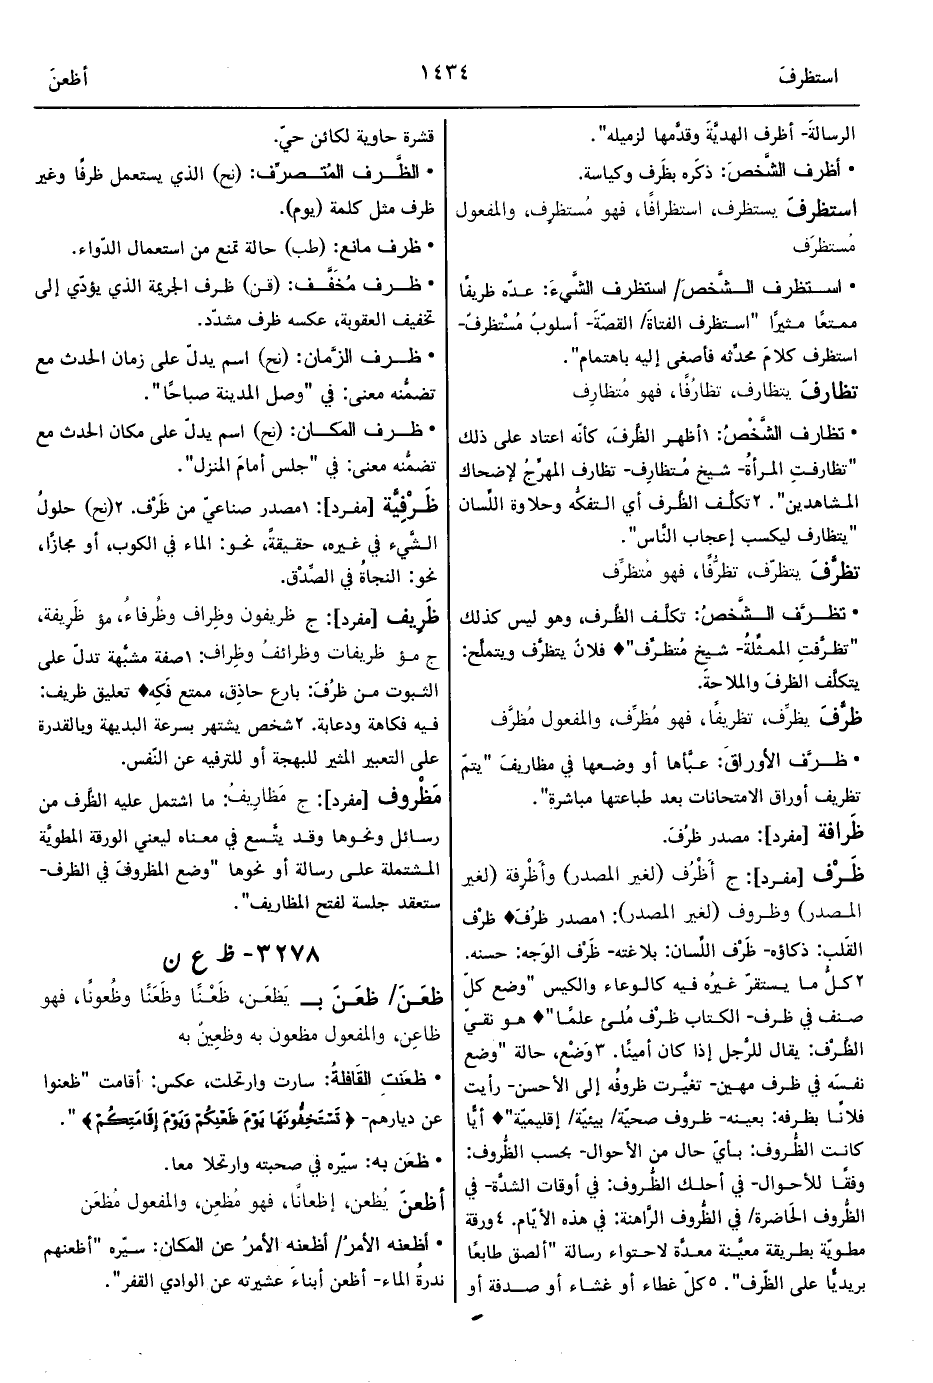 استظرفَ
١٤٣٤
أظعنَ
الرسالةَ- أظرف الهديَّةَ وقدَّمها لزميله".
• أظرف الشَّخصَ: ذكَره بظَرف وكياسة.
استظرفَ يستظرف، استظرافًا، فهو مُستظرِف، والمفعول
مُستظرَف
• استظرف الشَّخصَ/ استظرف الشَّيءَ: عدّه ظريفًا
ممتعًا مثيرًا "استظرف الفتاةَ/ القصّةَ- أسلوبُ مُسْتظرفٌ-
استظرف كلامَ محدِّثه فأصغى إليه باهتمام".
تظارفَ يتظارف، تظارُفًا، فهو مُتظارِف
• تظارف الشَّخصُ: ١أظهر الظَّرفَ، كأنّه اعتاد على ذلك
"تظارفتِ المرأةُ- شيخ مُتظارِف- تظارف المهرِّجُ لإضحاك
المشاهدين". ٢تكلّف الظَّرف أي التفكُّه وحلاوة اللِّسان
"يتظارف ليكسب إعجابَ النَّاس".
تظرَّفَ يتظرّف، تظرُّفًا، فهو مُتظرِّف
• تظرَّف الشَّخصُ: تكلّف الظَّرف، وهو ليس كذلك
"تظرَّفتِ الممثِّلةُ- شيخٌ مُتظرِّف"♦ فلانٌ يتظرَّف ويتملَّح:
يتكلَّف الظرفَ والملاحةَ.
ظرَّفَ يظرِّف، تظريفًا، فهو مُظرِّف، والمفعول مُظرَّف
• ظرَّف الأوراقَ: عبَّأها أو وضعها في مظاريفَ "يتمّ
تظريف أوراق الامتحانات بعد طباعتها مباشرةً".
ظَرافة [مفرد]: مصدر ظرُفَ.
ظَرْف [مفرد]: ج أَظْرُف (لغير المصدر) وأَظْرِفة (لغير
المصدر) وظروف (لغير المصدر): ١مصدر ظرُفَ♦ ظَرْف
القلب: ذكاؤه- ظَرْف اللِّسان: بلاغته- ظَرْف الوَجه: حسنه.
٢كلُّ ما يستقرّ غيرُه فيه كالوعاء والكيس "وضع كلّ
صنف في ظرف- الكتاب ظرْف مُلئ علمًا"♦ هو نقيّ
الظَّرْف: يقال للرَّجل إذا كان أمينًا. ٣وَضْع، حالة "وضع
نفسَه في ظرف مهين- تغيَّرت ظروفُه إلى الأحسن- رأيت
فلانًا بظرفه: بعينه- ظروف صحيّة/ بيئيّة/ إقليمية"♦ أيًّا
كانت الظُّروف: بأيّ حال من الأحوال- بحسب الظُّروف:
وفقًا للأحوال- في أحلك الظُّروف: في أوقات الشدَّة- في
الظُّروف الحَاضرة/ في الظُّروف الرَّاهنة: في هذه الأيّام. ٤ورقة
مطويّة بطريقة معيَّنة معدَّة لاحتواء رسالة "ألصق طابعًا
بريديًّا على الظَّرف". ٥كلّ غطاء أو غشاء أو صدفة أو
قشرة حاوية لكائن حيّ.
• الظَّرف المُتصرِّف: (نح) الذي يستعمل ظرفًا وغير
ظرف مثل كلمة (يوم).
• ظرف مانع: (طب) حالة تمنع من استعمال الدَّواء.
• ظرف مُخَفَّف: (قن) ظرف الجريمة الذي يؤدّي إلى
تخفيف العقوبة، عكسه ظرف مشدّد.
• ظرف الزَّمان: (نح) اسم يدلّ على زمان الحدث مع
تضمُّنه معنى: في "وصل المدينة صباحًا".
• ظرف المكان: (نح) اسم يدلّ على مكان الحدث مع
تضمُّنه معنى: في "جلس أمامَ المنزل".
ظَرْفِيَّة [مفرد]: ١مصدر صناعيّ من ظَرْف. ٢(نح) حلولُ
الشَّيء في غيره، حقيقةً، نحو: الماء في الكوب، أو مجازًا،
نحو: النجاةُ في الصِّدْق.
ظَريف [مفرد]: ج ظريفون وظِراف وظُرفاءُ، مؤ ظَريفة،
ج مؤ ظريفات وظرائفُ وظِراف: ١صفة مشبَّهة تدلّ على
الثبوت من ظرُفَ: بارع حاذِق، ممتع فَكِه♦ تعليق ظريف:
فيه فكاهة ودعابة. ٢شخص يشتهر بسرعة البديهة وبالقدرة
على التعبير المثير للبهجة أو للترفيه عن النَّفس.
مَظْروف [مفرد]: ج مَظاريفُ: ما اشتمل عليه الظَّرف من
رسائل ونحوها وقد يتَّسع في معناه ليعني الورقة المطويَّة
المشتملة على رسالة أو نحوها "وضع المظروفَ في الظرف-
ستعقد جلسة لفتح المظاريف".
٣٢٧٨- ظ ع ن
ظعَنَ/ ظعَنَ بـ يَظعَن، ظَعْنًا وظَعَنًا وظُعونًا، فهو
ظاعِن، والمفعول مظعون به وظَعِينٌ به
• ظعَنت القَافلةُ: سارت وارتحلت، عكس: أقامت "ظعنوا
عن ديارهم- ﴿ تَسْتَخِفُّونَهَا يَوْمَ ظَعْنِكُمْ وَيَوْمَ إِقَامَتِكُمْ ﴾ ".
• ظعَن به: سيّره في صحبته وارتحلا معا.
أظعنَ يُظعن، إظعانًا، فهو مُظعِن، والمفعول مُظعَن
• أظعنه الأمرُ/ أظعنه الأمرُ عن المكان: سيّره "أظعنهم
ندرةُ الماء- أظعن أبناءَ عشيرته عن الوادي القفر".